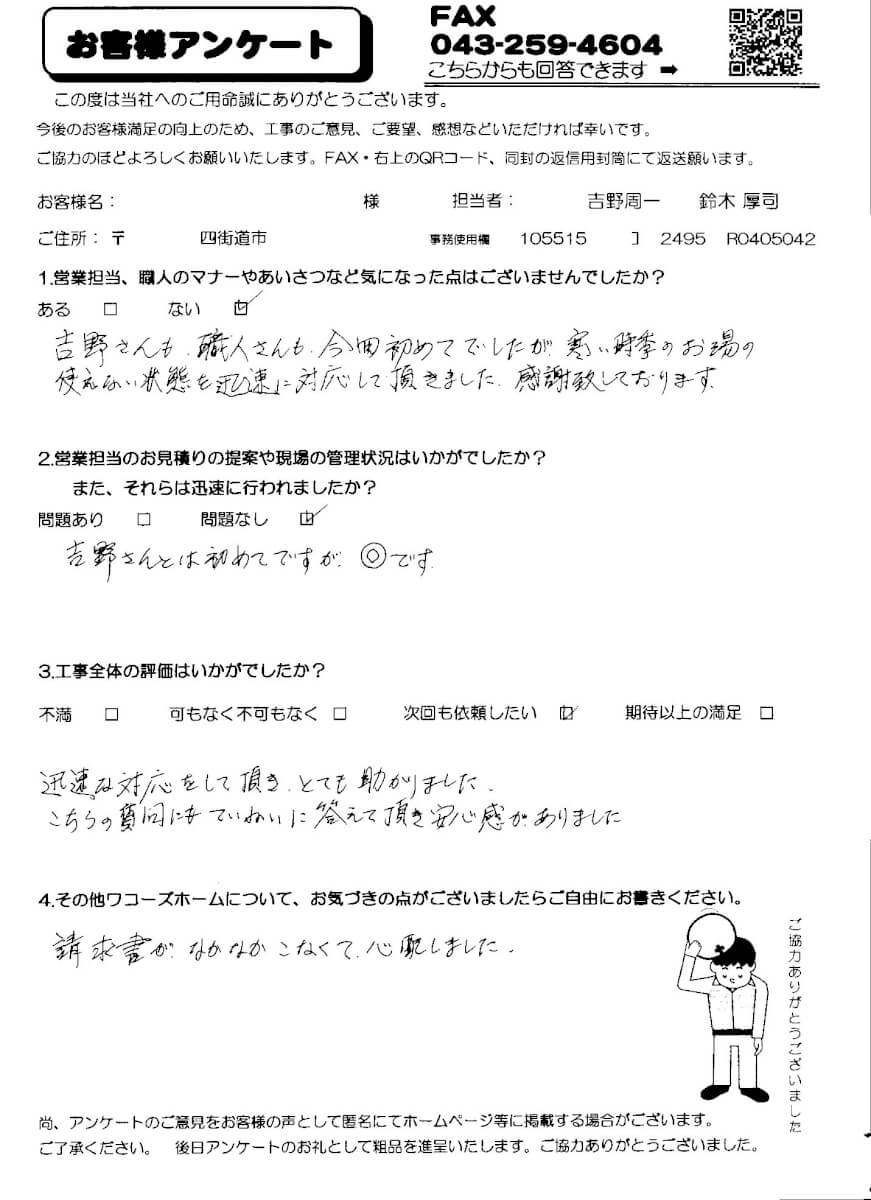 お客様アンケート
FAX
043-259-4604
こちらからも回答できます ➡
この度は当社へのご用命誠にありがとうございます。
今後のお客様満足の向上のため、工事のご意見、ご要望、感想などいただければ幸いです。
ご協力のほどよろしくお願いいたします。FAX・右上のQRコード、同封の返信用封筒にて返送願います。
お客様名： 様 担当者： 吉野周一 鈴木 厚司
ご住所：〒 四街道市 事務使用欄 105515 ] 2495 R0405042
1.営業担当、職人のマナーやあいさつなど気になった点はございませんでしたか？
ある □ ない ☑
吉野さんも、職人さんも、今回初めてでしたが、寒い時季のお湯の
使えない状態を迅速に対応して頂きました、感謝致しております。
2.営業担当のお見積りの提案や現場の管理状況はいかがでしたか？
また、それらは迅速に行われましたか？
問題あり □ 問題なし ☑
吉野さんとは初めてですが、◎です。
3.工事全体の評価はいかがでしたか？
不満 □ 可もなく不可もなく □ 次回も依頼したい ☑ 期待以上の満足 □
迅速な対応をして頂き、とても助かりました、
こちらの質問にもていねいに答えて頂き安心感がありました
4.その他ワコーズホームについて、お気づきの点がございましたらご自由にお書きください。
請求書が、なかなかこなくて、心配しました、
ご協力ありがとうございました
尚、アンケートのご意見をお客様の声として匿名にてホームページ等に掲載する場合がございます。
ご了承ください。 後日アンケートのお礼として粗品を進呈いたします。ご協力ありがとうございました。